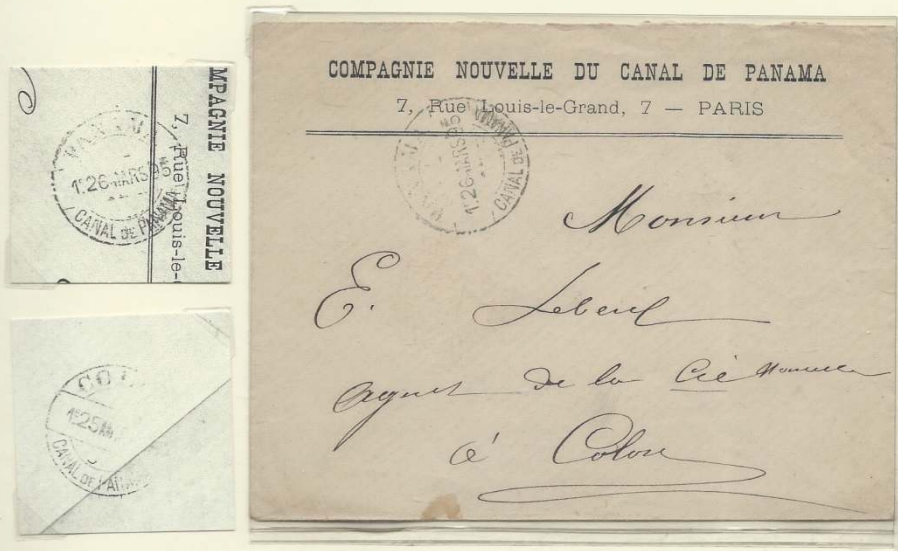 MPAGNIE NOUVELLE
7, Rue Louis-le-
PANAMA
1E 26 MARS 95
CANAL DE PANAMA
CO
1E 25
CANAL DE PANAMA
COMPAGNIE NOUVELLE DU CANAL DE PANAMA
7, Rue Louis-le-Grand, 7 — PARIS
PANAMA
1E 26 MARS 95
CANAL DE PANAMA
Monsieur
E.
agent de la Cie Nouvelle
à Colon